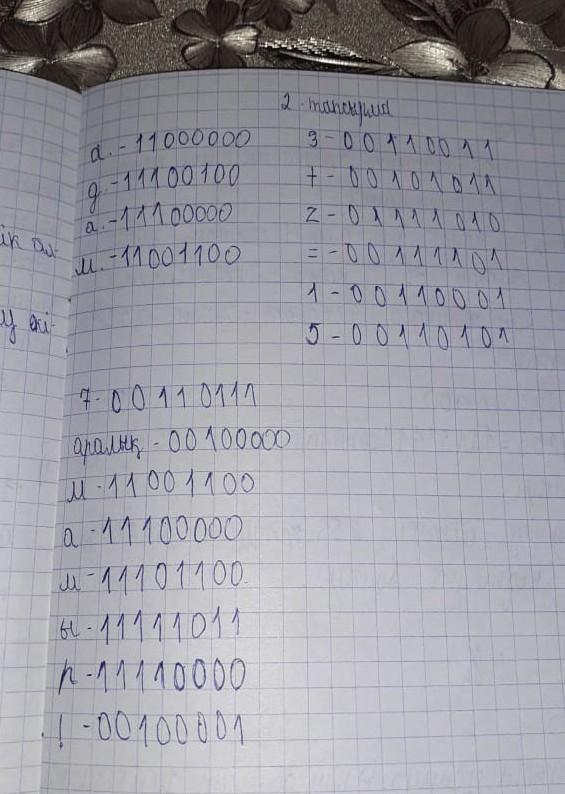 а. -11000000
д -11100100
а. -11100000
м. -11001100
2 тапсырма
3 - 00110011
+ - 00101011
z - 01111010
= - 00111101
1 - 00110001
5 - 00110101
7 - 00110111
аралық - 00100000
м -11001100
а -11100000
м -11101100
ы -11111011
р -11110000
! -00100001